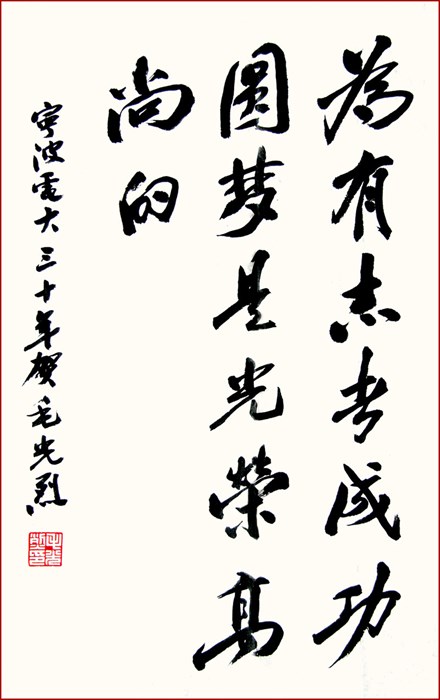 為有志者成功
圆梦是光榮高
尚的
宁波電大三十年贺毛光烈